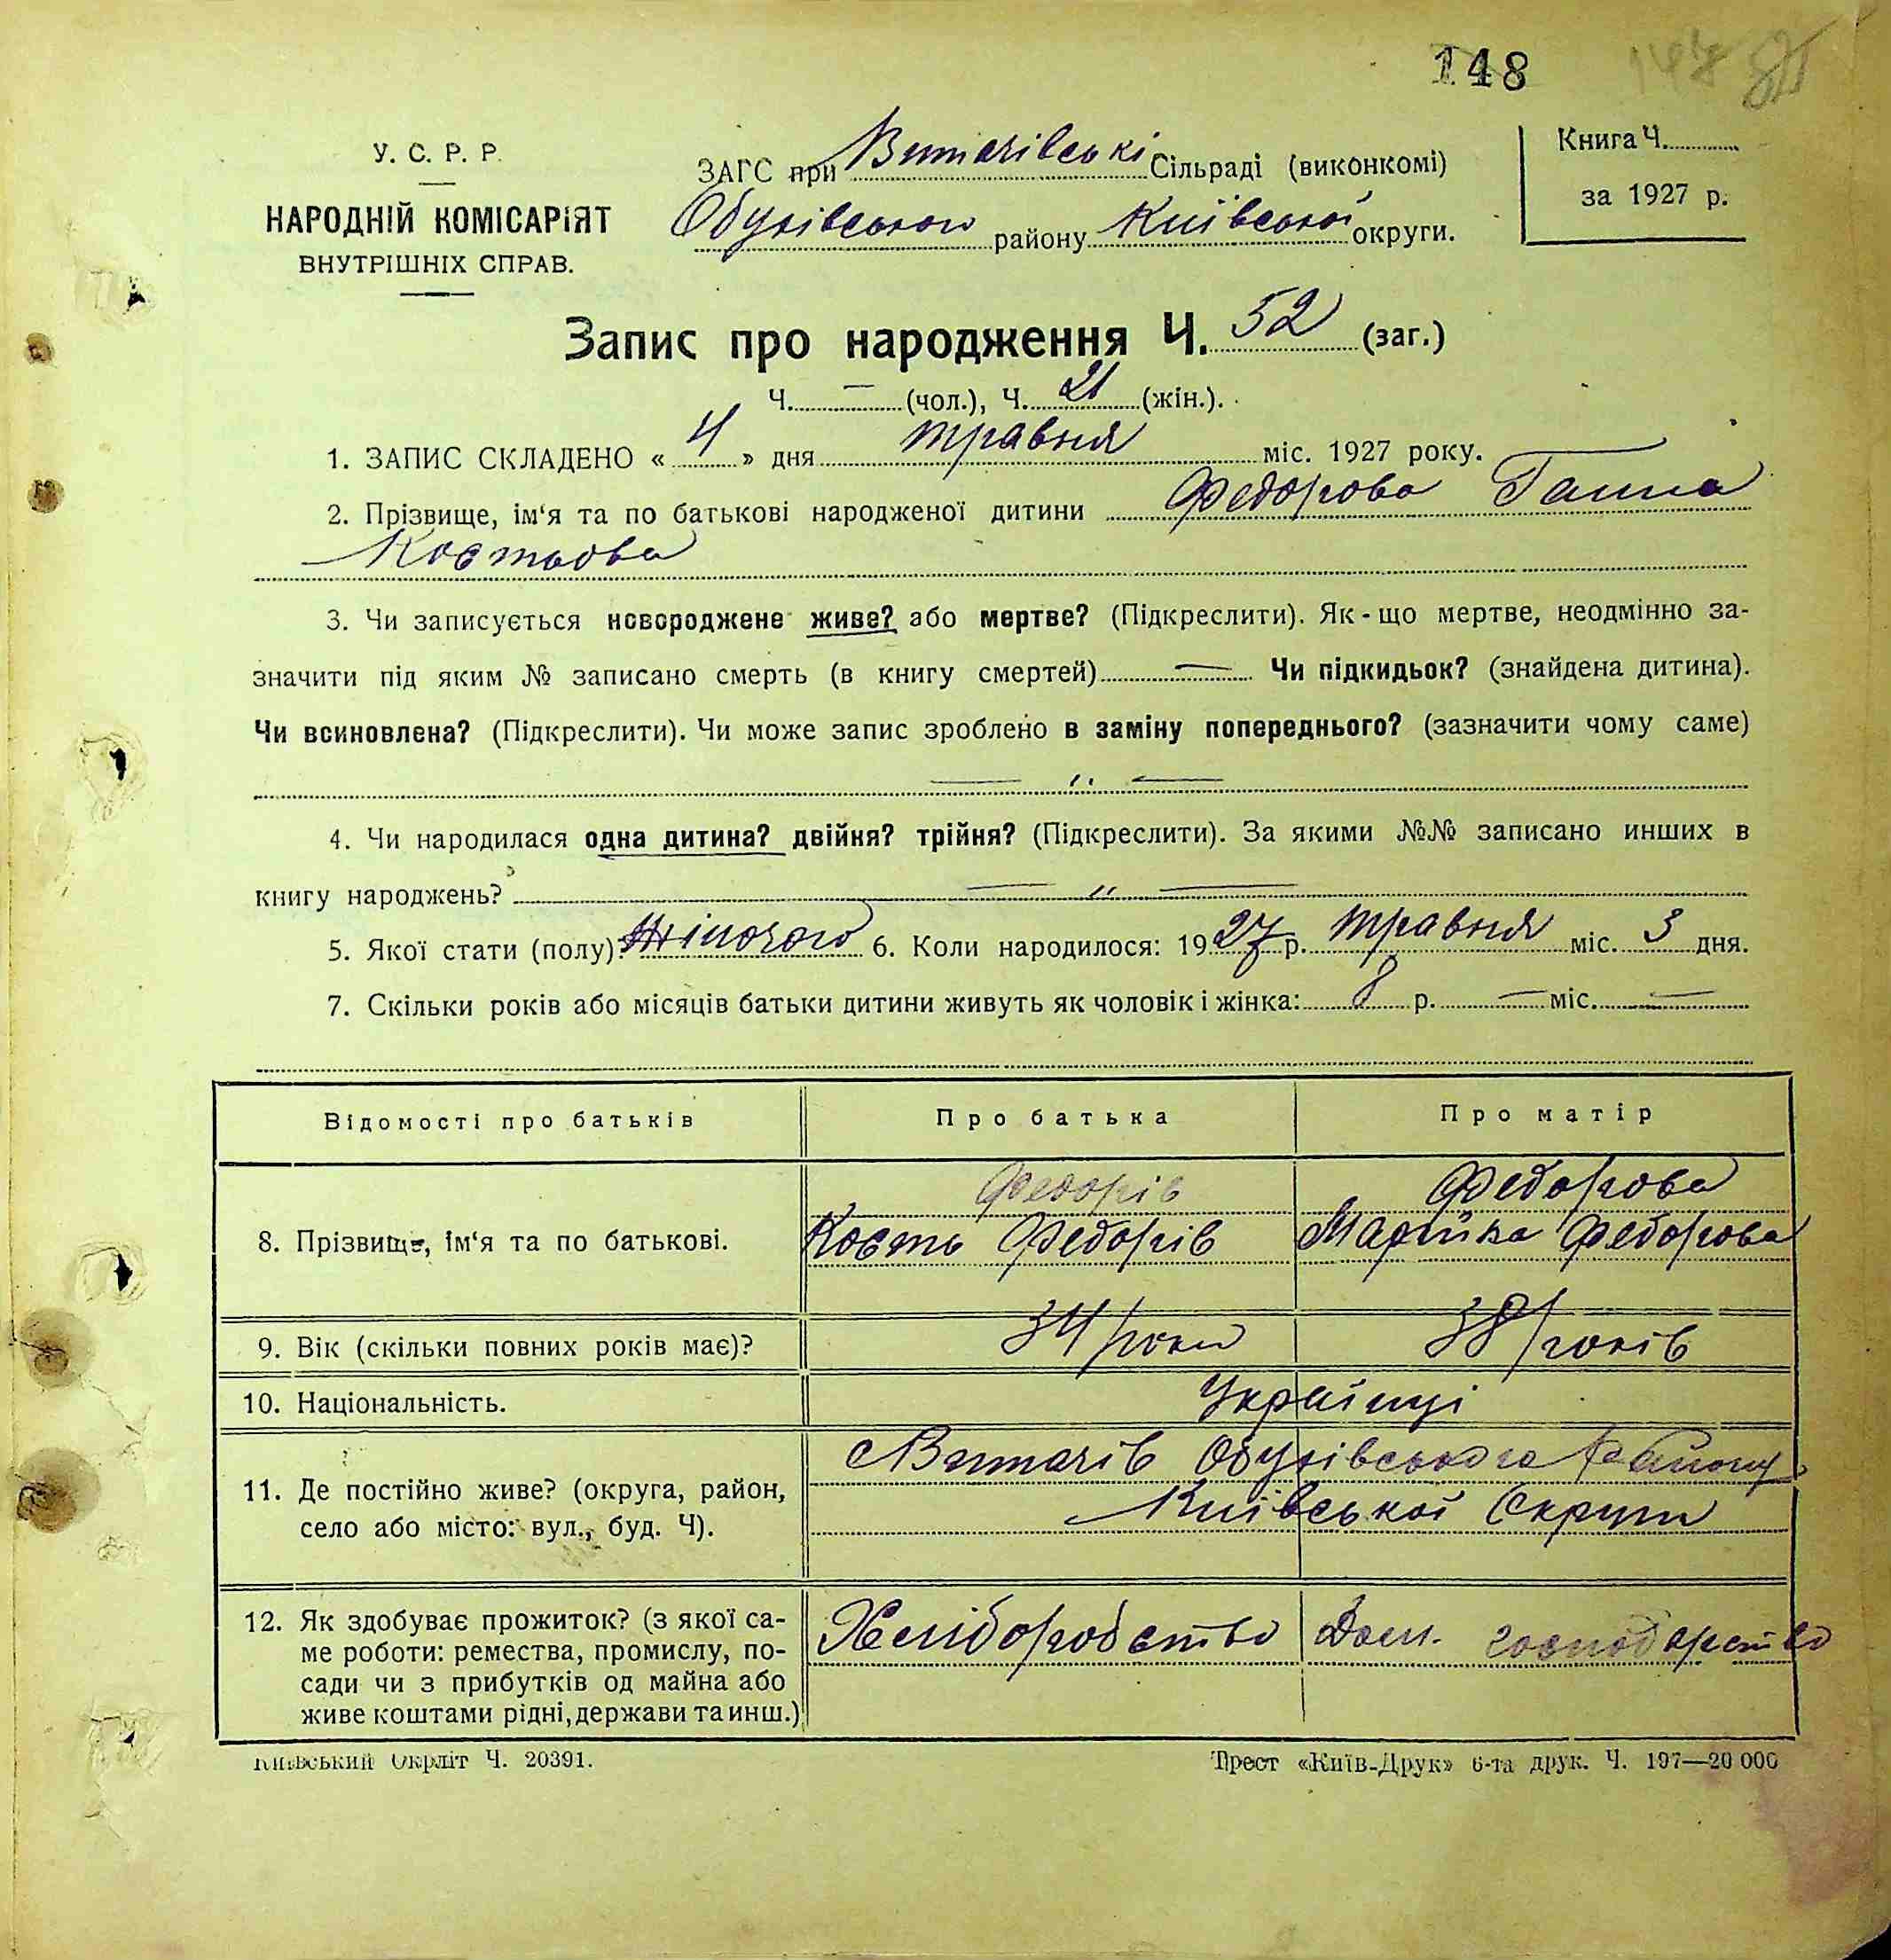 148
У. С. Р. Р.
НАРОДНІЙ КОМІСАРІЯТ
ВНУТРІШНІХ СПРАВ.
ЗАГС при Витачівські Сільраді (виконкомі)
Обухівського району Київської округи.
Книга Ч.
за 1927 р.
Запис про народження Ч. 52 (заг.)
Ч. — (чол.), Ч. 21 (жін.).
1. ЗАПИС СКЛАДЕНО « 4 » дня травня міс. 1927 року.
2. Прізвище, ім‘я та по батькові народженої дитини Федорова Ганна
Костьова
3. Чи записується новороджене живе? або мертве? (Підкреслити). Як-що мертве, неодмінно за-
значити під яким № записано смерть (в книгу смертей) — Чи підкидьок? (знайдена дитина).
Чи всиновлена? (Підкреслити). Чи може запис зроблено в заміну попереднього? (зазначити чому саме)
— „ —
4. Чи народилася одна дитина? двійня? трійня? (Підкреслити). За якими №№ записано инших в
книгу народжень? — „ —
5. Якої стати (полу)? Жіночого 6. Коли народилося: 1927 р. травня міс. 3 дня.
7. Скільки років або місяців батьки дитини живуть як чоловік і жінка: 8 р. — міс. —
Відомості про батьків Про батька Про матір
Федорів Федорова
8. Прізвище, ім‘я та по батькові. Кость Федорів Марійка Федорова
9. Вік (скільки повних років має)? 34 роки 38 років
10. Національність. Українці
Витачів Обухівського Району
11. Де постійно живе? (округа, район, Київської Округи
село або місто: вул., буд. Ч).
12. Як здобуває прожиток? (з якої са- Хліборобство Дом. господарство
ме роботи: ремества, промислу, по-
сади чи з прибутків од майна або
живе коштами рідні, держави та инш.)
Київський Окрліт Ч. 20391. Трест «Київ-Друк» 6-та друк. Ч. 197—20 000